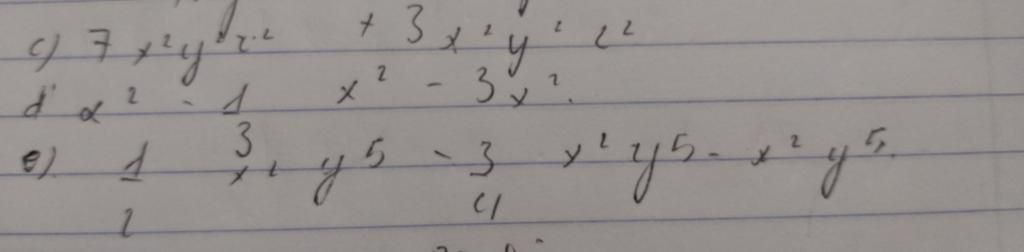 c) 7 x²y²z² + 3x²y²z²
d x² - 1/3 x² - 3x².
e). 1/2 x² y⁵ - 3/4 x² y⁵ - x² y⁵.